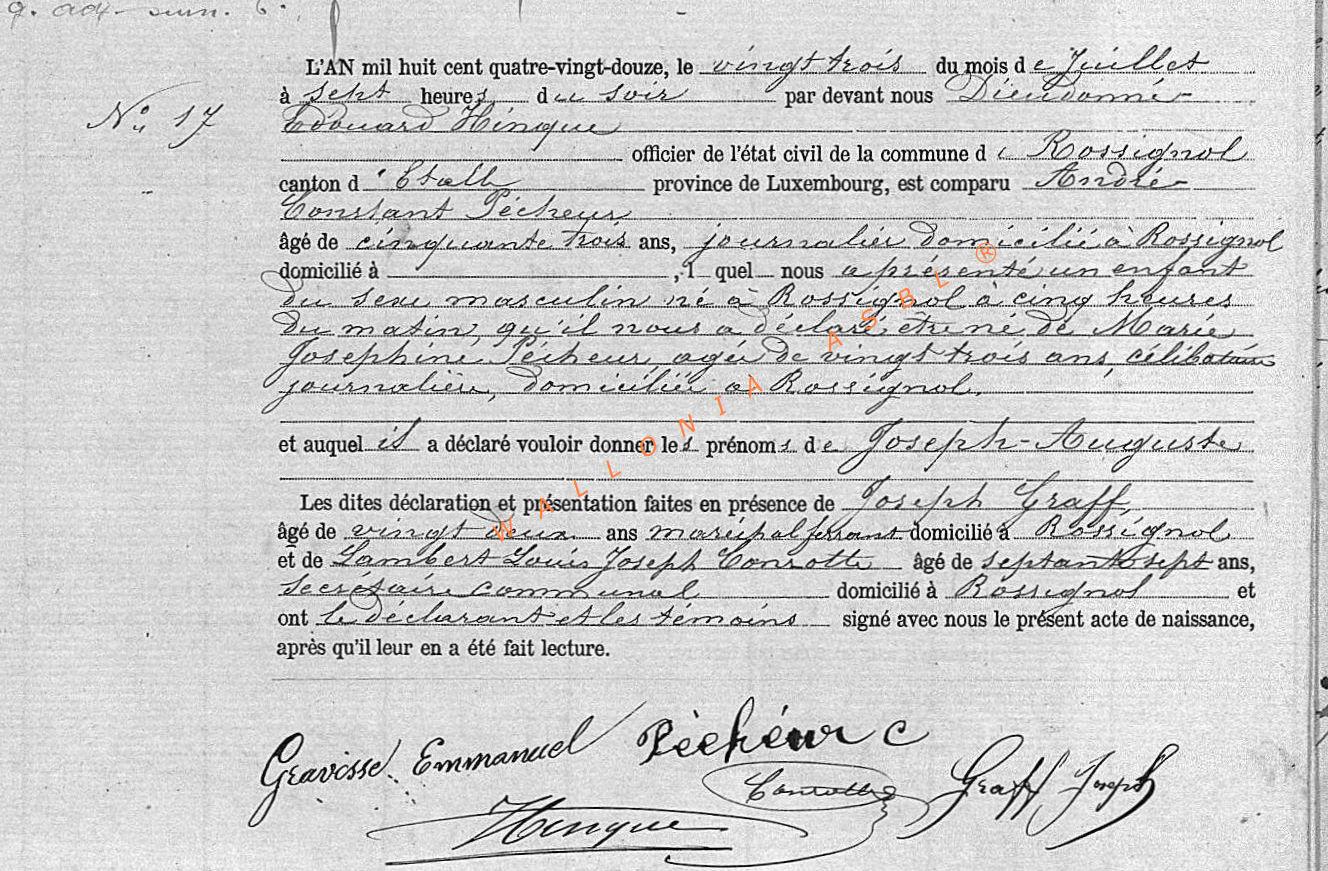 L'AN mil huit cent quatre-vingt-douze, le vingt trois du mois de Juillet
à sept heures du soir par devant nous Dieudonné
No. 17
Edouard Hinque
officier de l'état civil de la commune de Rossignol
canton d'Etalle province de Luxembourg, est comparu André
Constant Pécheur
âgé de cinquante trois ans, journalier domicilié à Rossignol
domicilié à , l quel nous a présenté un enfant
du sexe masculin né à Rossignol à cinq heures
du matin, qu'il nous a déclaré être né de Marie
Josephine Pécheur, agée de vingt trois ans, célibataire
journalière, domiciliée a Rossignol.
et auquel il a déclaré vouloir donner les prénoms de Joseph-Auguste
Les dites déclaration et présentation faites en présence de Joseph Graff,
âgé de vingt deux ans maréchal ferrant domicilié à Rossignol
et de Lambert Louis Joseph Conrotte âgé de septante sept ans,
secrétaire communal domicilié à Rossignol et
ont le déclarant et les témoins signé avec nous le présent acte de naissance,
après qu'il leur en a été fait lecture.
Gravisse Emmanuel Pècheur C
Conrotte Graff Joseph
Hinque
WALLONIA ASBL ®